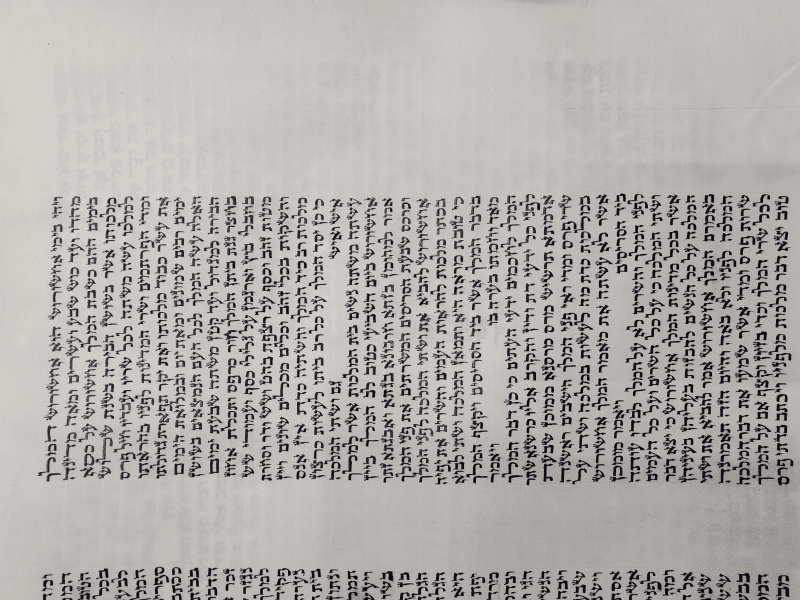 ויהי בימי אחשורוש הוא אחשורוש המלך
מהדו ועד כוש שבע ועשרים ומאה מדינה
בימים ההם כשבת המלך אחשורוש על כסא
מלכותו אשר בשושן הבירה בשנת שלוש
למלכו עשה משתה לכל שריו ועבדיו חיל פרס
ומדי הפרתמים ושרי המדינות לפניו בהראתו
את עשר כבוד מלכותו ואת יקר תפארת גדולתו
ימים רבים שמונים ומאת יום ובמלואת הימים
האלה עשה המלך לכל העם הנמצאים בשושן
הבירה למגדול ועד קטן משתה שבעת ימים
בחצר גנת ביתן המלך חור כרפס ותכלת אחוז
בחבלי בוץ וארגמן על גלילי כסף ועמודי שש
מטות זהב וכסף על רצפת בהט ושש ודר וסחרת
והשקות בכלי זהב וכלים מכלים שונים ויין
מלכות רב כיד המלך והשתיה כדת אין אנס
כי כן יסד המלך על כל רב ביתו לעשות כרצון
איש ואיש גם ושתי המלכה
עשתה משתה נשים בית המלכות אשר למלך
אחשורוש ביום השביעי כטוב לב המלך ביין
אמר למהומן בזתא חרבונא בגתא ואבגתא זתר
וכרכס שבעת הסריסים המשרתים את פני המלך
אחשורוש להביא את ושתי המלכה לפני המלך
בכתר מלכות להראות העמים והשרים את יפיה
כי טובת מראה היא ותמאן המלכה ושתי לבוא
בדבר המלך אשר ביד הסריסים ויקצף המלך
מאד וחמתו בערה בו ויאמר
המלך לחכמים ידעי העתים כי כן דבר המלך
לפני כל ידעי דת ודין והקרב אליו כרשנא שתר
אדמתא תרשיש מרס מרסנא ממוכן שבעת
שרי פרס ומדי ראי פני המלך הישבים ראשנה
במלכות כדת מה לעשות במלכה ושתי על
אשר לא עשתה את מאמר המלך אחשורוש
ביד הסריסים ויאמר מומכן
לפני המלך והשרים לא על המלך לבדו עותה
ושתי המלכה כי על כל השרים ועל כל העמים
אשר בכל מדינות המלך אחשורוש כי יצא דבר
המלכה על כל הנשים להבזות בעליהן בעיניהן
באמרם המלך אחשורוש אמר להביא את ושתי
המלכה לפניו ולא באה והיום הזה תאמרנה
שרות פרס ומדי אשר שמעו את דבר המלכה
לכל שרי המלך וכדי בזיון וקצף אם על המלך
טוב יצא דבר מלכות מלפניו ויכתב בדתי פרס